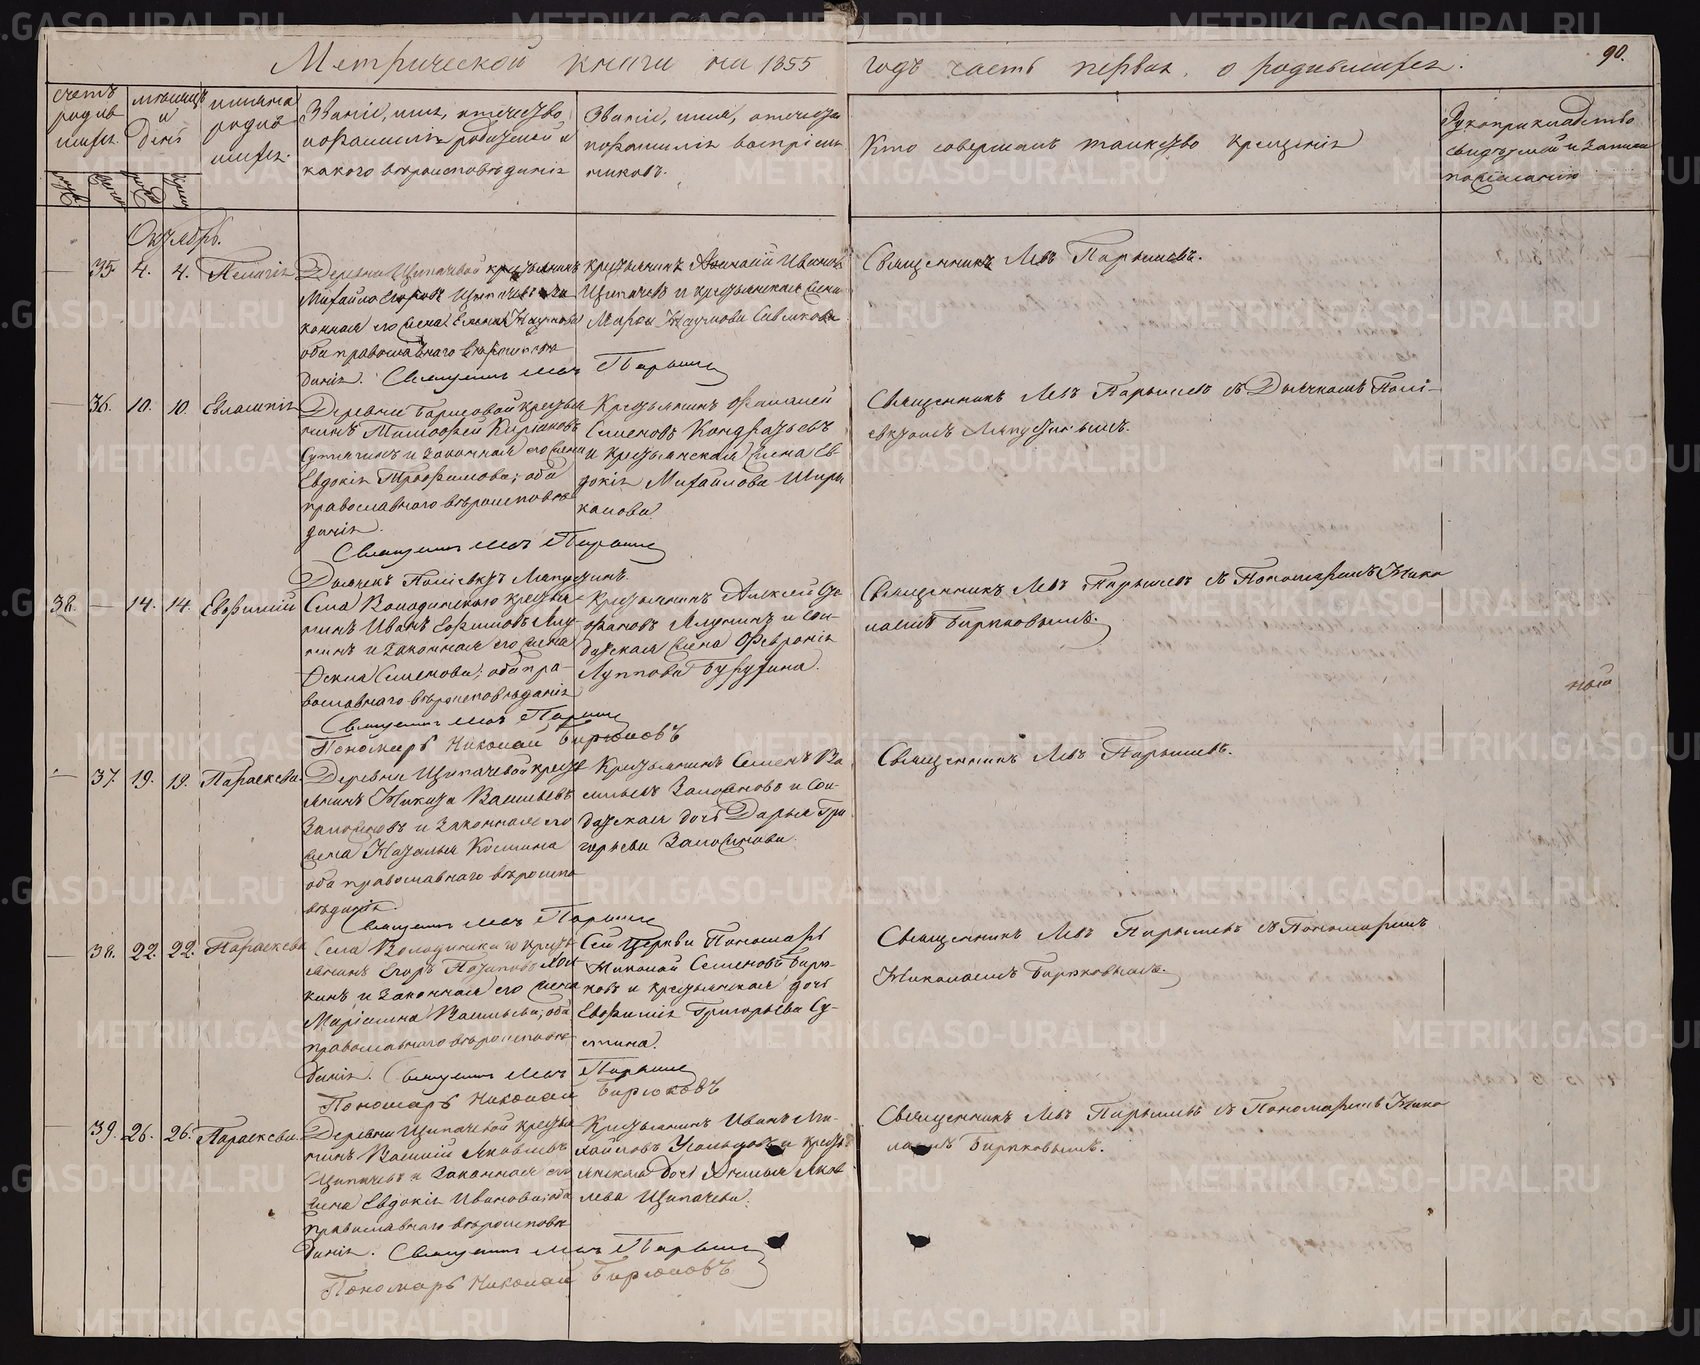 Метрической книги на 1855 годъ часть первая, о родившихся.
90.
счетъ родив шихся.
мѣсяцъ и день
имена родив шихся.
Званіе, имя, отчество
и фамилія родителей и
какого вѣроисповѣданія
Званіе, имя, отчество
и фамилія воспріем
никовъ.
Кто совершалъ таинство крещенія
Рукоприкладство
свидѣтелей о записи
по желанію
Октябрь.
— 35. 4. 4. Пелагія
Деревни Щипачевой крестьянинъ
Михайло Егоровъ Щипачевъ и за
конная его жена Елена Наумова
оба православнаго вѣроисповѣ
данія. Священникъ Левъ Парышевъ
крестьянинъ Афанасій Ивановъ
Щипачевъ и крестьянская жена
Марѳа Наумова
Священникъ Левъ Парышевъ.
— 36. 10. 10. Евлампія
Деревни Борисовой крестья
нинъ Тимофей Киріаковъ
Сутягинъ и законная его жена
Евдокія Трофимова; оба
православнаго вѣроисповѣ
данія.
Священникъ Левъ Парышевъ
Дьячекъ Поліевктъ Ляпустинъ.
Крестьянинъ Филиппъ
Семеновъ Кондратьевъ
и крестьянская жена Ев
докія Михайлова Ширы
калова.
Священникъ Левъ Парышевъ съ Дьячкомъ Полі-
евктомъ Ляпустинымъ.
38. — 14. 14. Евфимій
Села Володинского крестья
нинъ Иванъ Ефимовъ Алу-
нинъ и законная его жена
Ѳекла Семенова; оба пра-
вославнаго вѣроисповѣданія
Священникъ Левъ Парышевъ
Пономарь Николай Бирюковъ
Крестьянинъ Алексѣй Сте
фановъ Алунинъ и сол-
датская жена Февронія
Луппова Бурухина.
Священникъ Левъ Парышевъ съ Пономаремъ Нико
лаемъ Бирюковымъ.
— 37. 19. 19. Параскева.
Деревни Щипачевой кресть
янинъ Никита Васильевъ
Заложновъ и законная его
жена Наталья Козмина
оба православнаго вѣроиспо
вѣданія.
Священникъ Левъ Парышевъ
Крестьянинъ Семенъ Ва
сильевъ Заложновъ и сол-
датская дочь Дарья Гри
горьева Заложнова.
Священникъ Левъ Парышевъ.
— 38. 22. 22. Параскева
Села Володинскаго кресть
янинъ Егоръ Потаповъ
кинъ и законная его жена
Маріамна Васильева; оба
православнаго вѣроисповѣ
данія. Священникъ Левъ Парышевъ
Пономарь Николай Бирюковъ
Сей Церкви Пономарь
Николай Семеновъ Бирю-
ковъ и крестьянская дочь
Евфимія Григорьева Су-
тягина.
Священникъ Левъ Парышевъ съ Пономаремъ
Николаемъ Бирюковымъ.
— 39. 26. 26. Параскева.
Деревни Щипачевой крестья
нинъ Василій Яковлевъ
Щипачевъ и законная его
жена Евдокія Иванова; оба
православнаго вѣроисповѣ
данія. Священникъ Левъ Парышевъ
Пономарь Николай Бирюковъ
Крестьянинъ Иванъ Ми-
хайловъ Усольцовъ и кресть
янская дочь Анисья Яков
лева Щипачева.
Священникъ Левъ Парышевъ съ Пономаремъ Нико
лаемъ Бирюковымъ.
METRIKI.GASO-URAL.RU